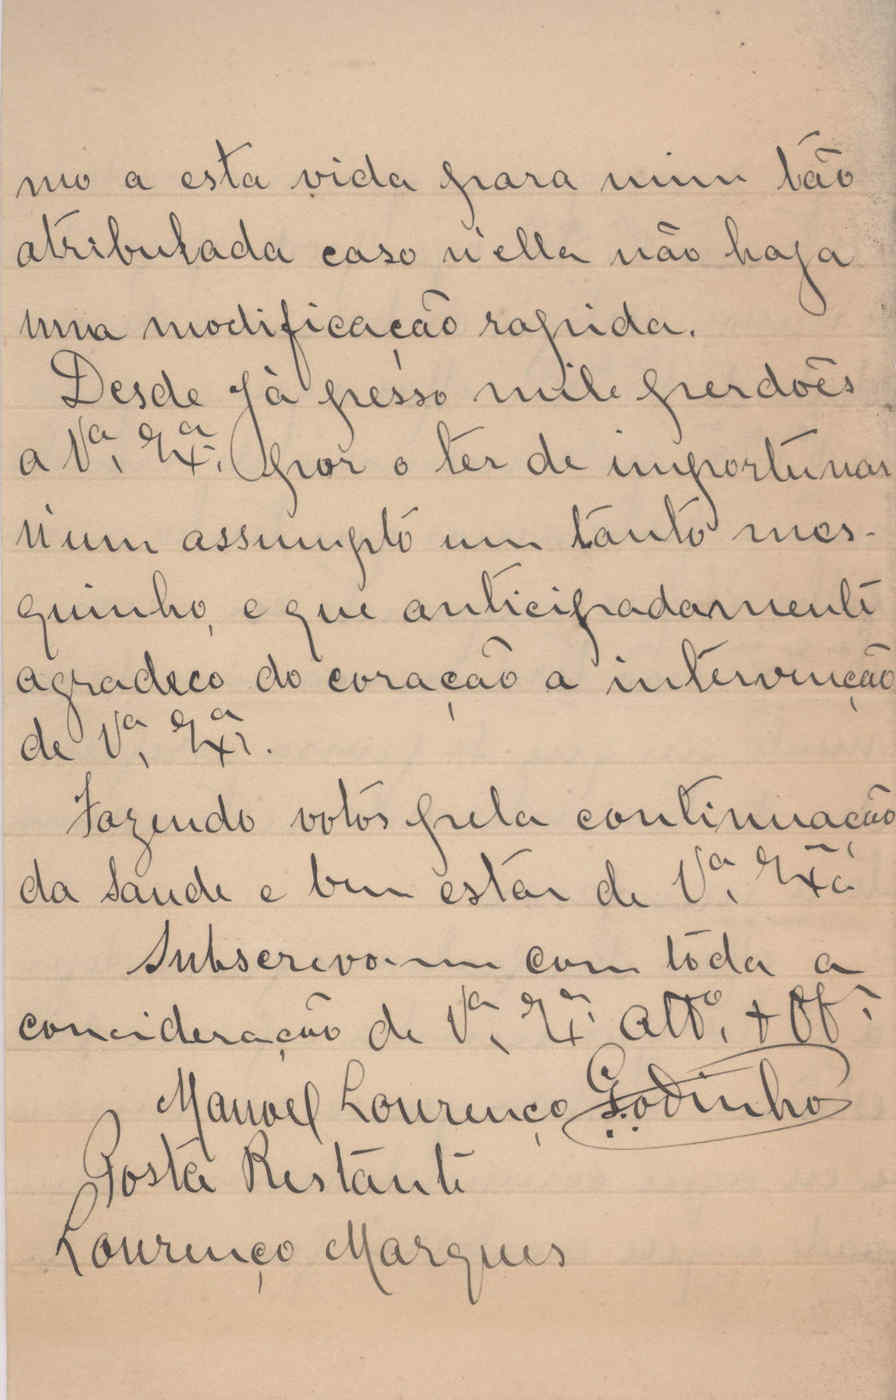 mo a esta vida para mim tão
atribulada caso n'ella não haja
uma modificação rapida.
Desde já pésso mil perdões
a Vª. Exª. por o ter de importunar
n'um assumpto um tanto mes-
quinho, e que anticipadamente
agradeço do coração a intervenção
de Vª. Exª.
Fazendo votos pela continuação
da saude e bem estar de Vª. Exª
Subscrevo-me com toda a
concideração de Vª. Exª. Attº. +
Manoel Lourenço Godinho
Posta Restante
Lourenço Marques